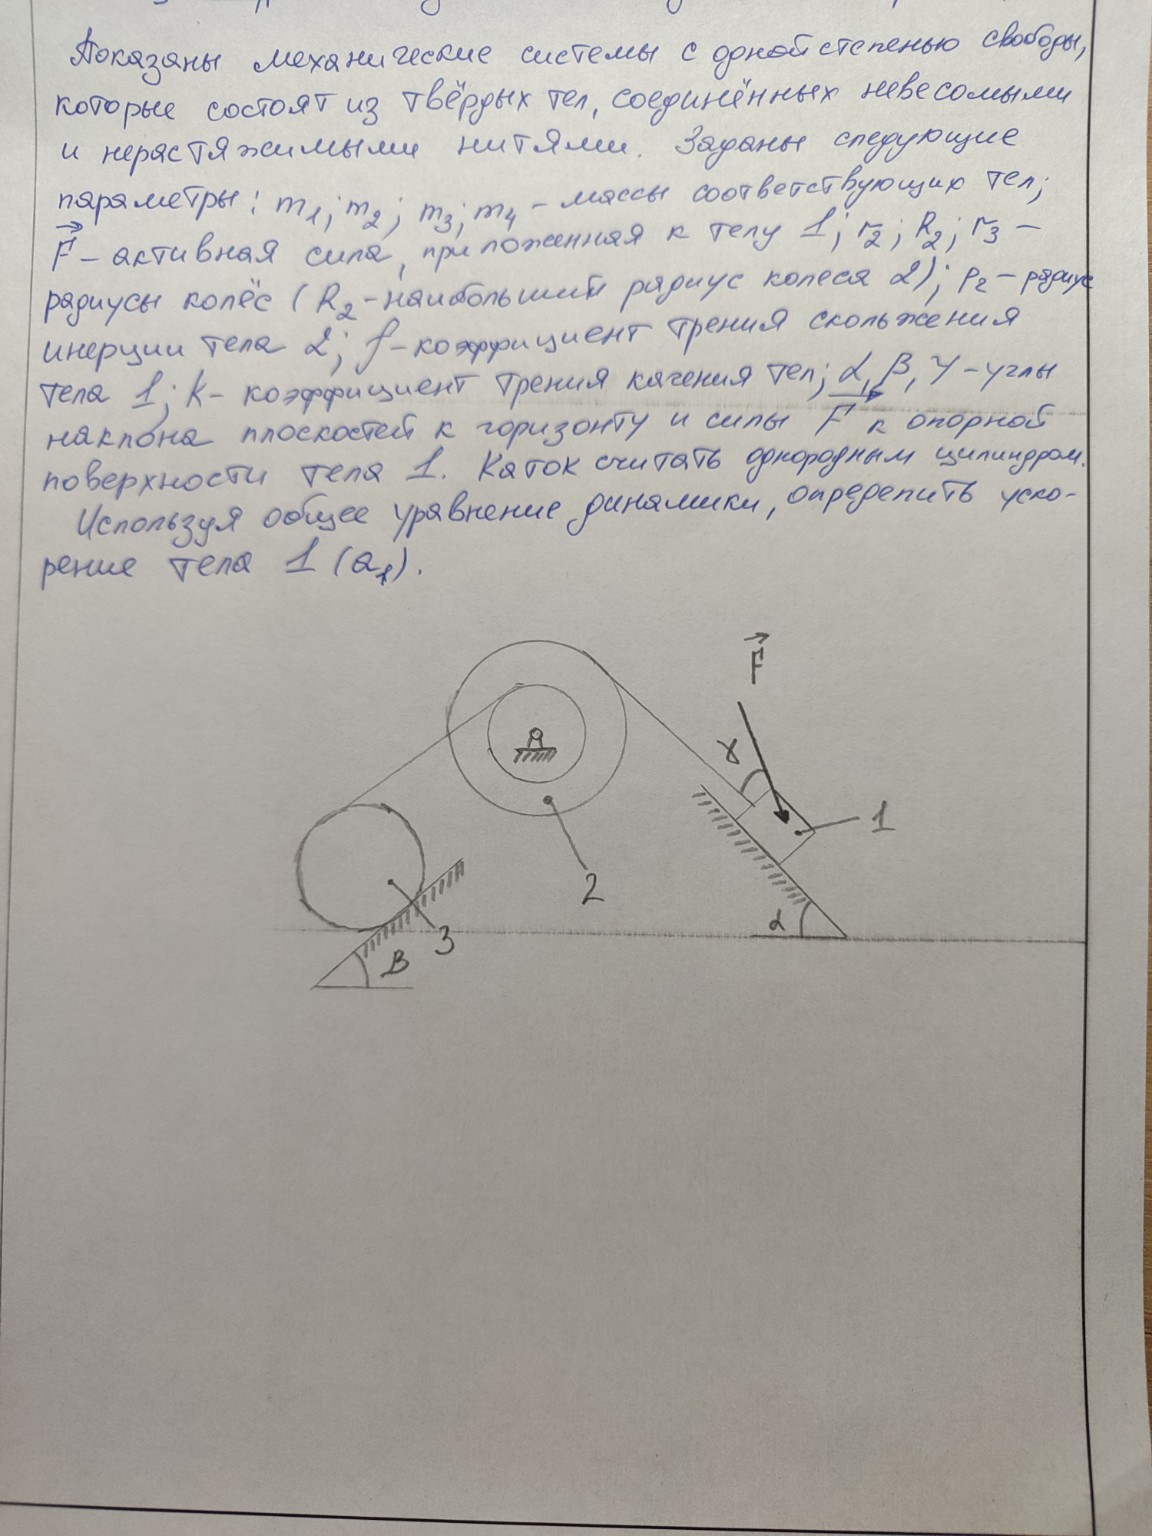 Показаны механические системы с одной степенью свободы,
которые состоят из твёрдых тел, соединённых невесомыми
и нерастяжимыми нитями. Заданы следующие
параметры: m₁; m₂; m₃; m₄ – массы соответствующих тел;
F⃗ – активная сила, приложенная к телу 1; r₂; R₂; r₃ –
радиусы колёс (R₂ – наибольший радиус колеса 2); ρ₂ – радиус
инерции тела 2; f – коэффициент трения скольжения
тела 1; k – коэффициент трения качения тел; α, β, γ – углы
наклона плоскостей к горизонту и силы F⃗ к опорной
поверхности тела 1. Каток считать однородным цилиндром.
Используя общее уравнение динамики, определить уско-
рение тела 1 (a₁).
F⃗
γ
1
2
α
3
β